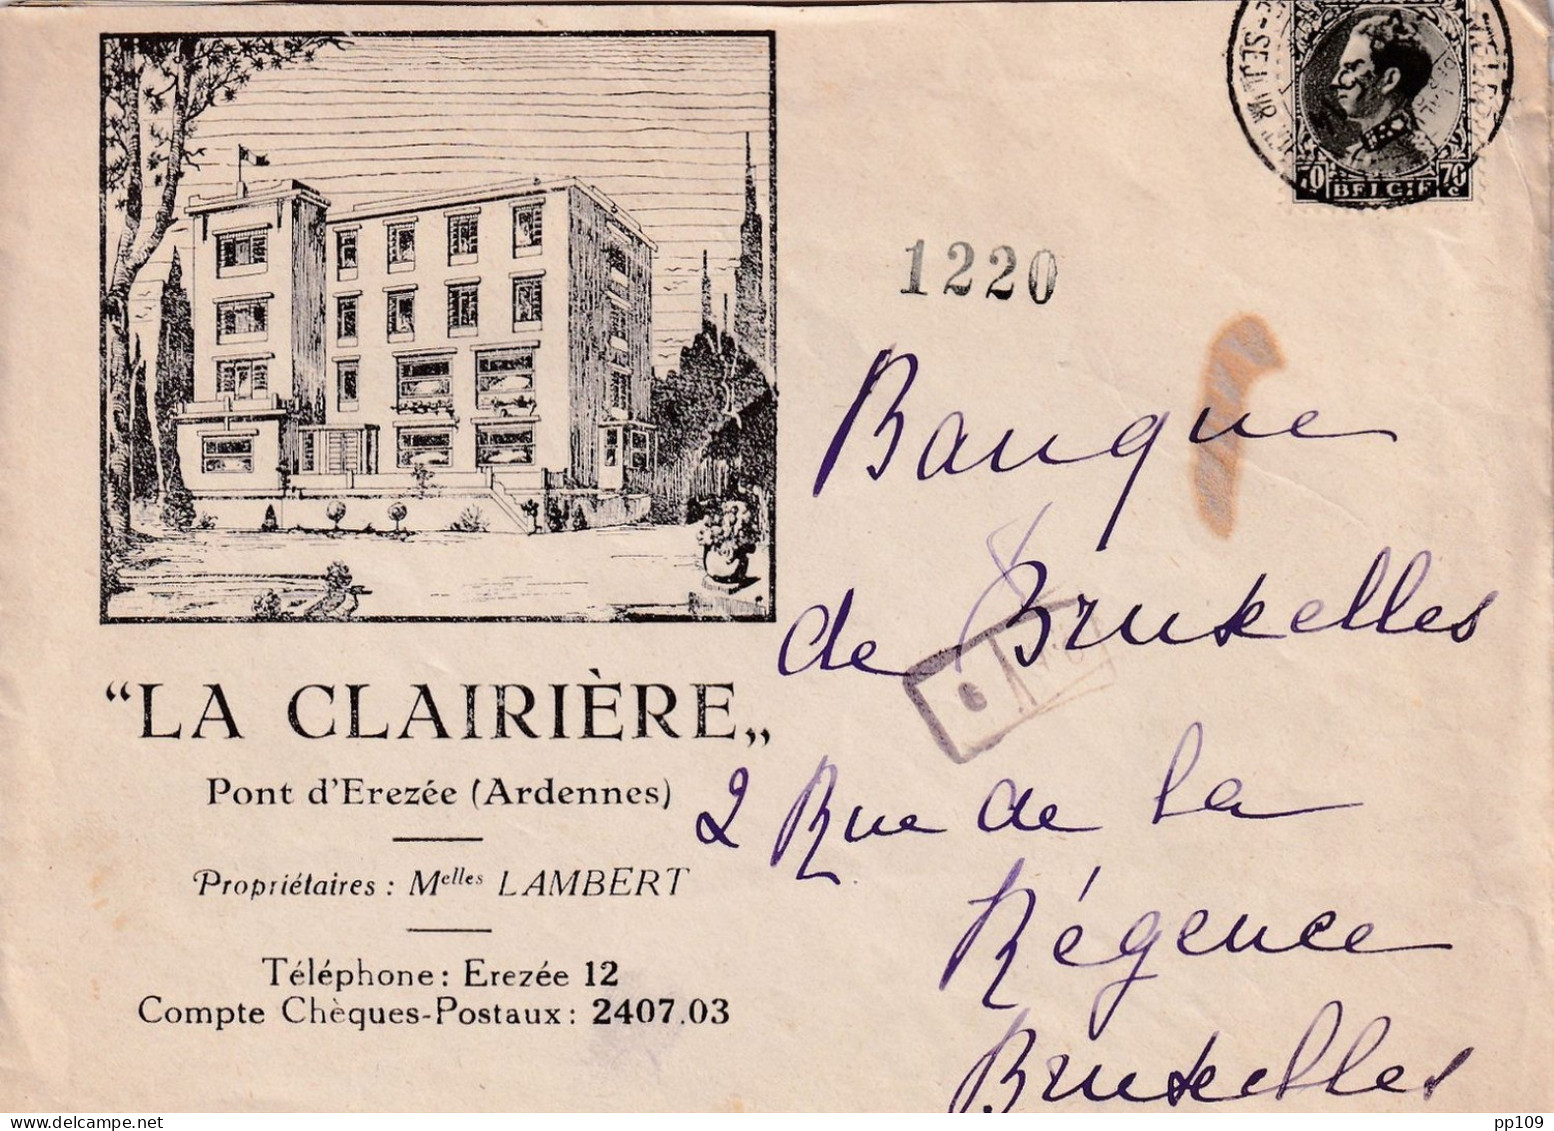 BELGIE
70
1220
Banque
de Bruxelles
2 Rue de la
Régence
Bruxelles
6
“LA CLAIRIÈRE„
Pont d'Erezée (Ardennes)
Propriétaires : Melles LAMBERT
Téléphone : Erezée 12
Compte Chèques-Postaux : 2407.03
pp109